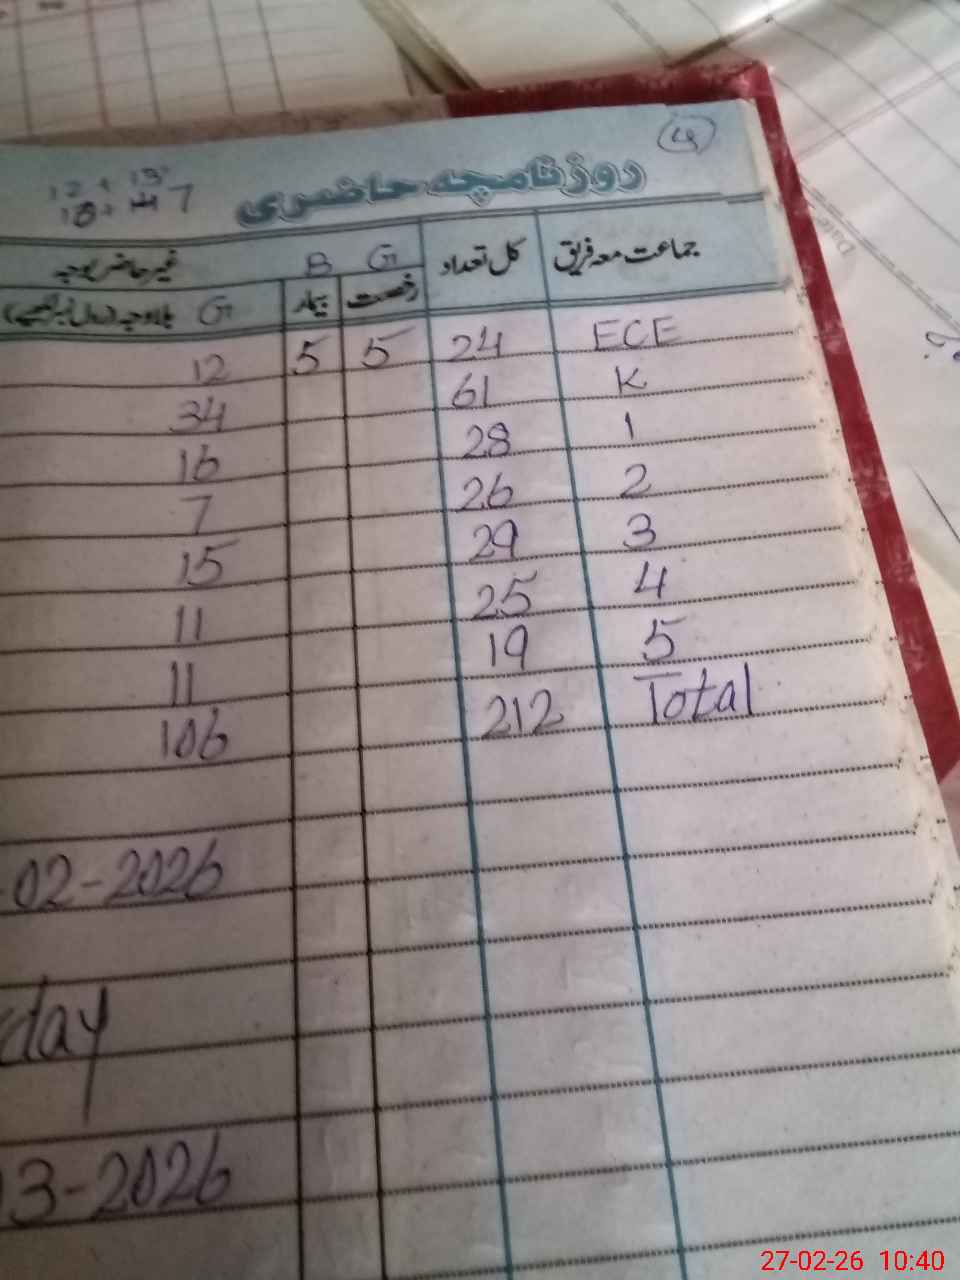 4
روزنامچہ حاضری
12 + 13
18+ 7
جماعت معہ فریق کل تعداد G B غیر حاضر بوجہ
رخصت بیمار G بلاوجہ (رول نمبر لکھیے)
ECE 24 5 5 12
K 61 34
1 28 16
2 26 7
3 29 15
4 25 11
5 19 11
Total 212 106
-02-2026
day
3-2026
Date
27-02-26 10:40